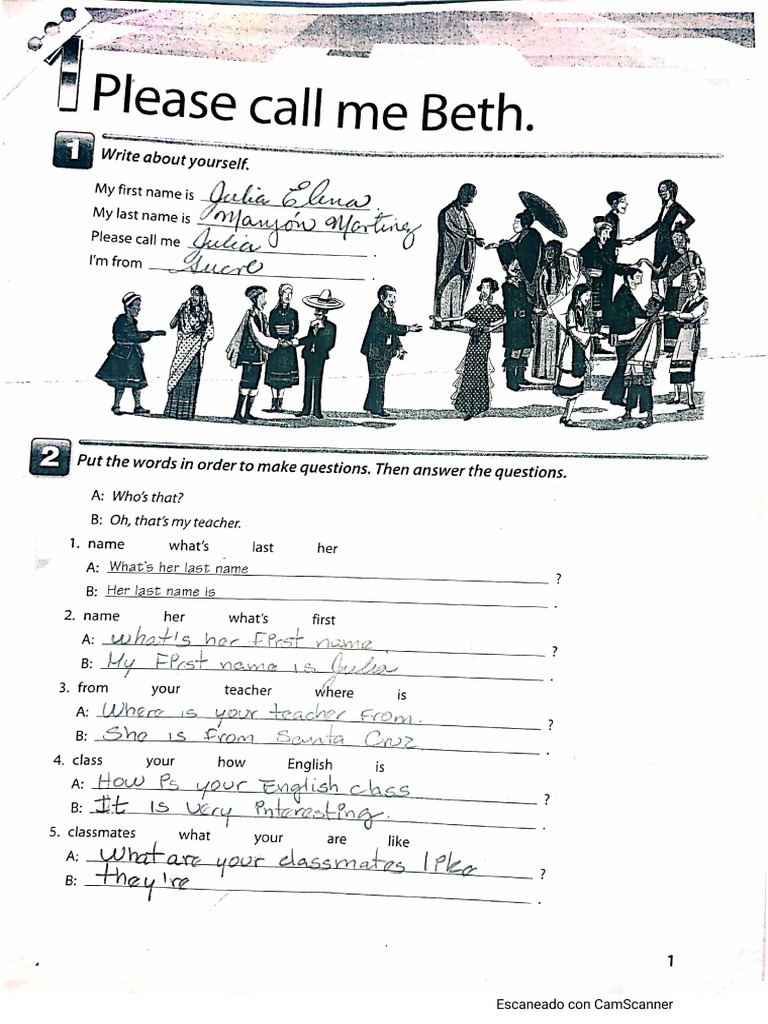 1
Please call me Beth.
1 Write about yourself.
My first name is Julia Elena.
My last name is Manjón Martinez
Please call me Julia.
I'm from Sucre.
2 Put the words in order to make questions. Then answer the questions.
A: Who's that?
B: Oh, that's my teacher.
1. name what's last her
A: What's her last name ?
B: Her last name is .
2. name her what's first
A: what's her First name ?
B: My First name is Julia .
3. from your teacher where is
A: Where is your teacher From. ?
B: She is From Santa Cruz .
4. class your how English is
A: How is your English class ?
B: It is very interesting. .
5. classmates what your are like
A: what are your classmates like ?
B: they're .
1
Escaneado con CamScanner